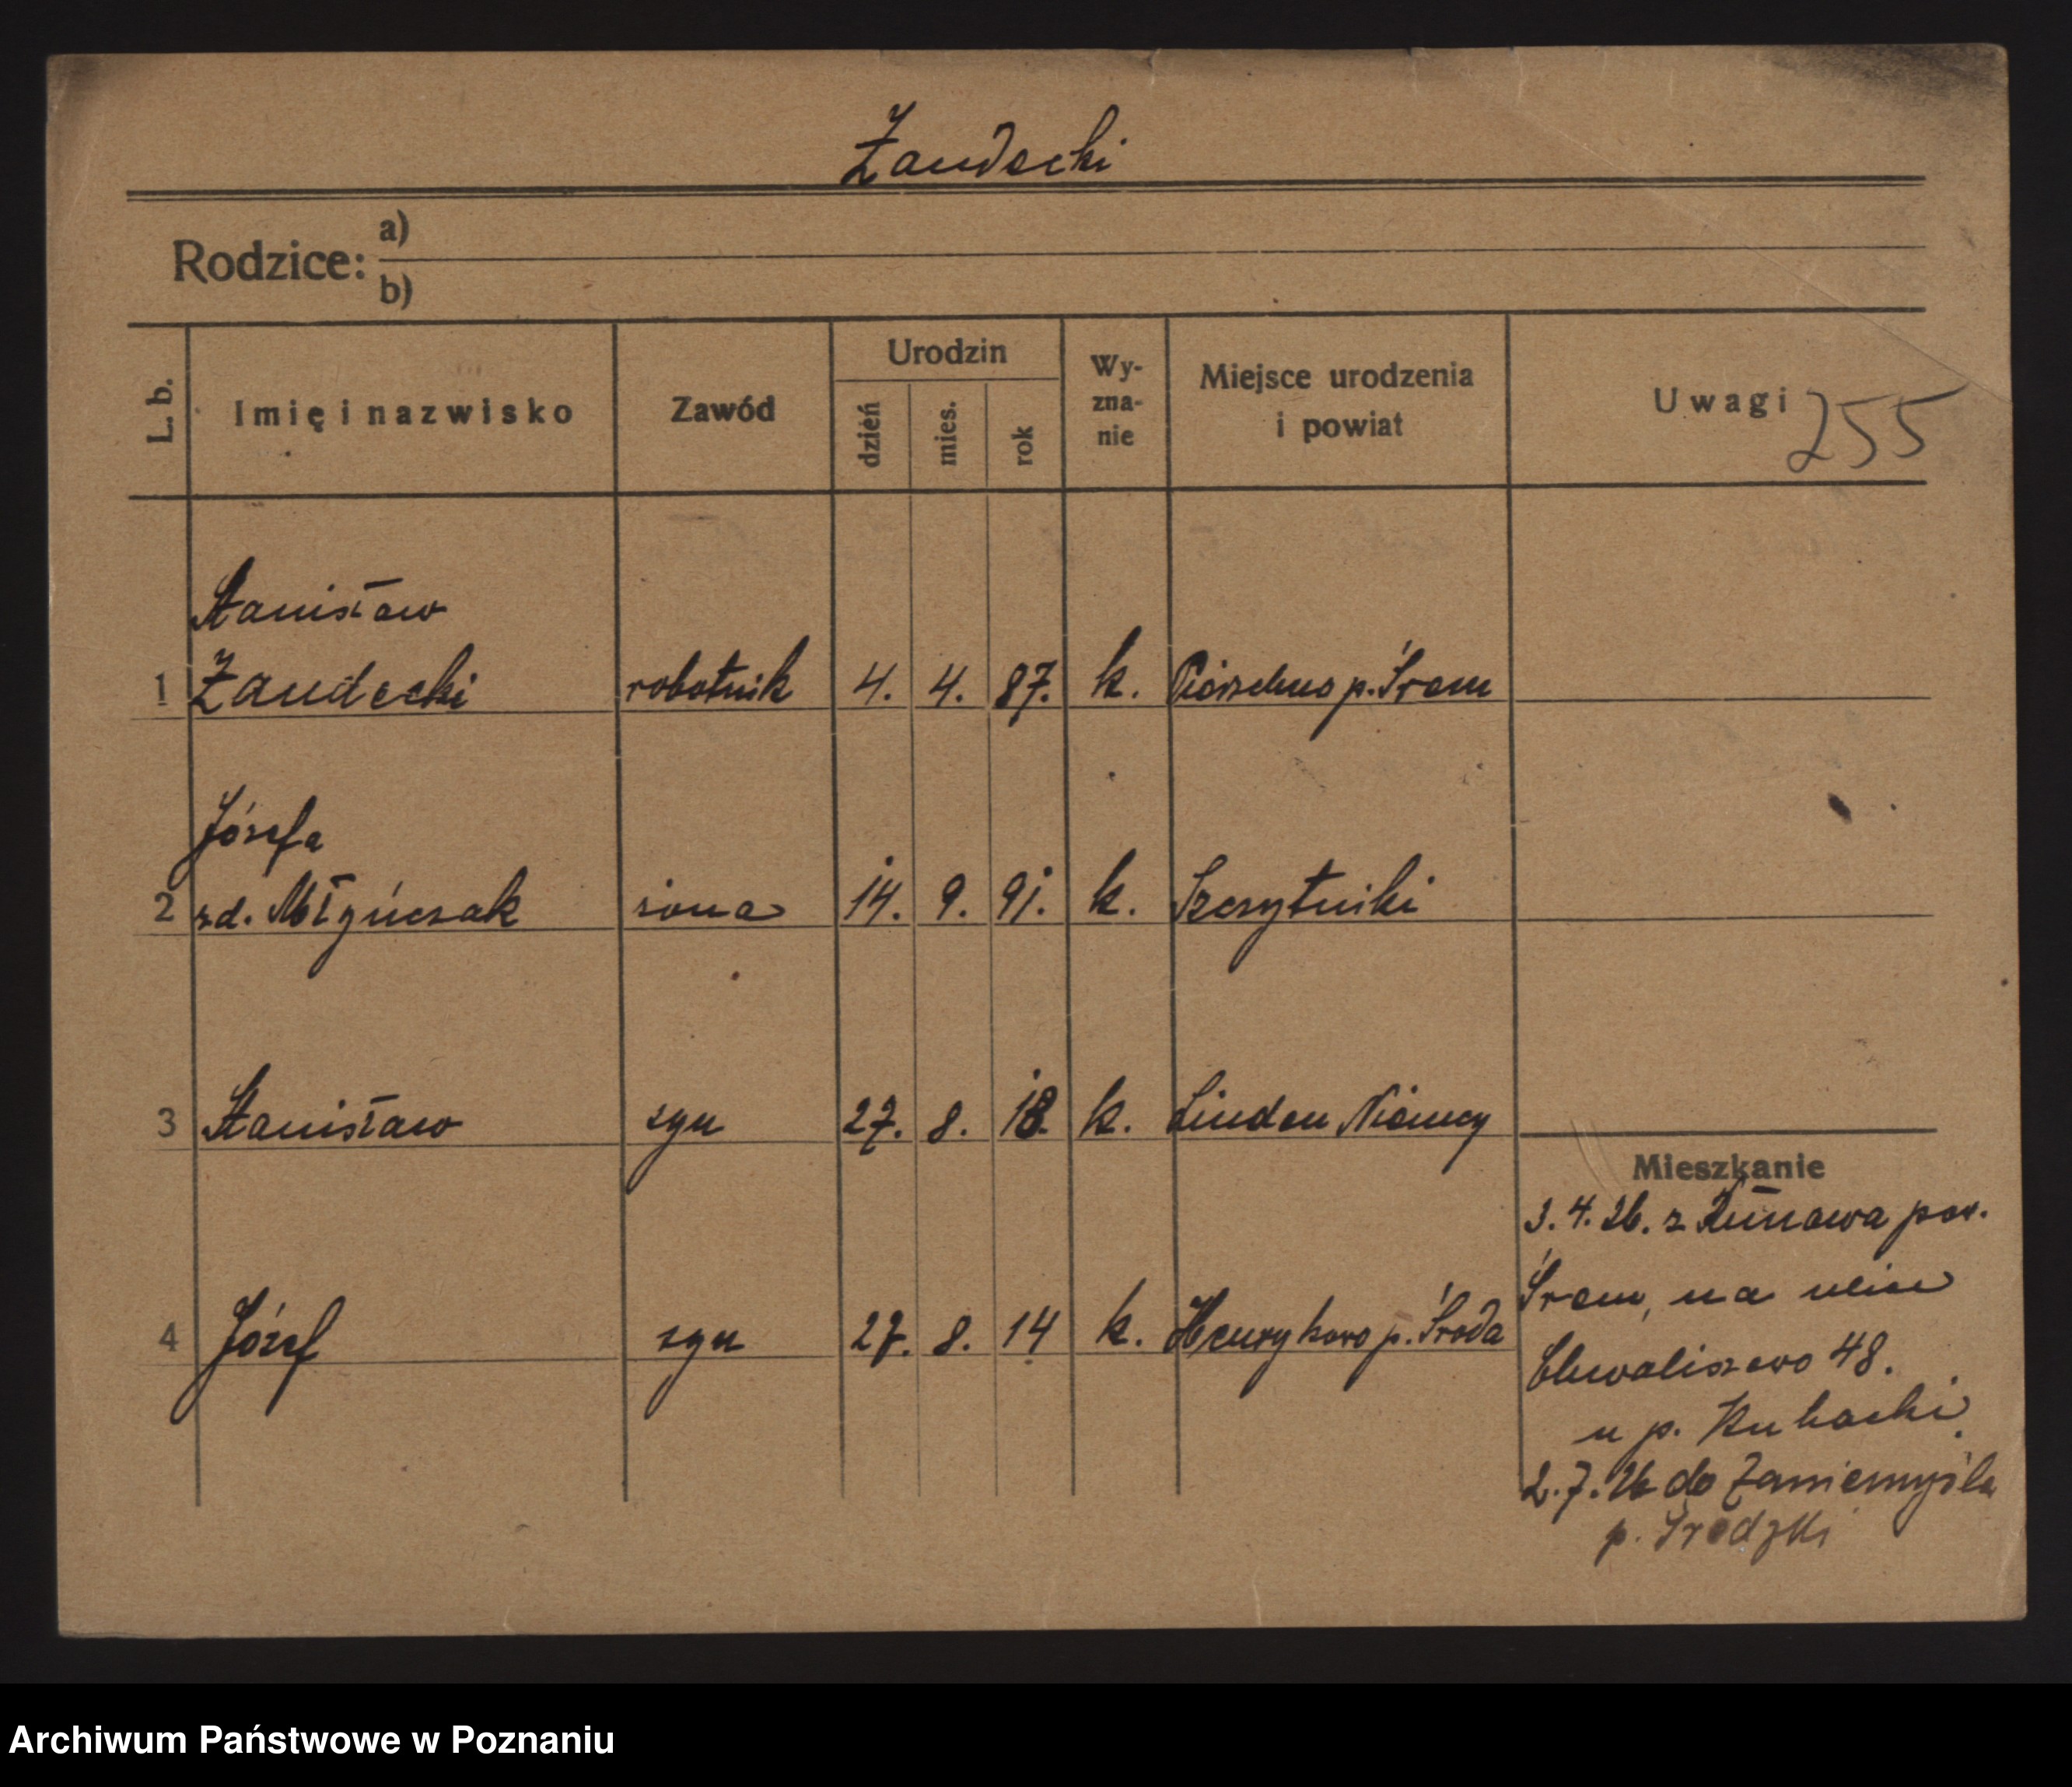 Żandecki
Rodzice: a)
b)
L. b. Imię i nazwisko Zawód Urodzin dzień mies. rok Wyzna-nie Miejsce urodzenia i powiat Uwagi 255
Stanisław
1 Żandecki robotnik 4. 4. 87. k. p. Śrem
Józefa
2 zd. Młyńczak żona 14. 9. 91. k. Szczytniki
3 Stanisław syn 27. 8. 18. k. Linden Niemcy
4 Józef syn 27. 8. 14 k. Henrykowo p. Środa
Mieszkanie
3. 4. 26. z pow.
Śrem, na
Chwaliszewo 48.
u p. Kubacki.
2. 7. 26 do Zaniemyśla
p. Środzki
Archiwum Państwowe w Poznaniu